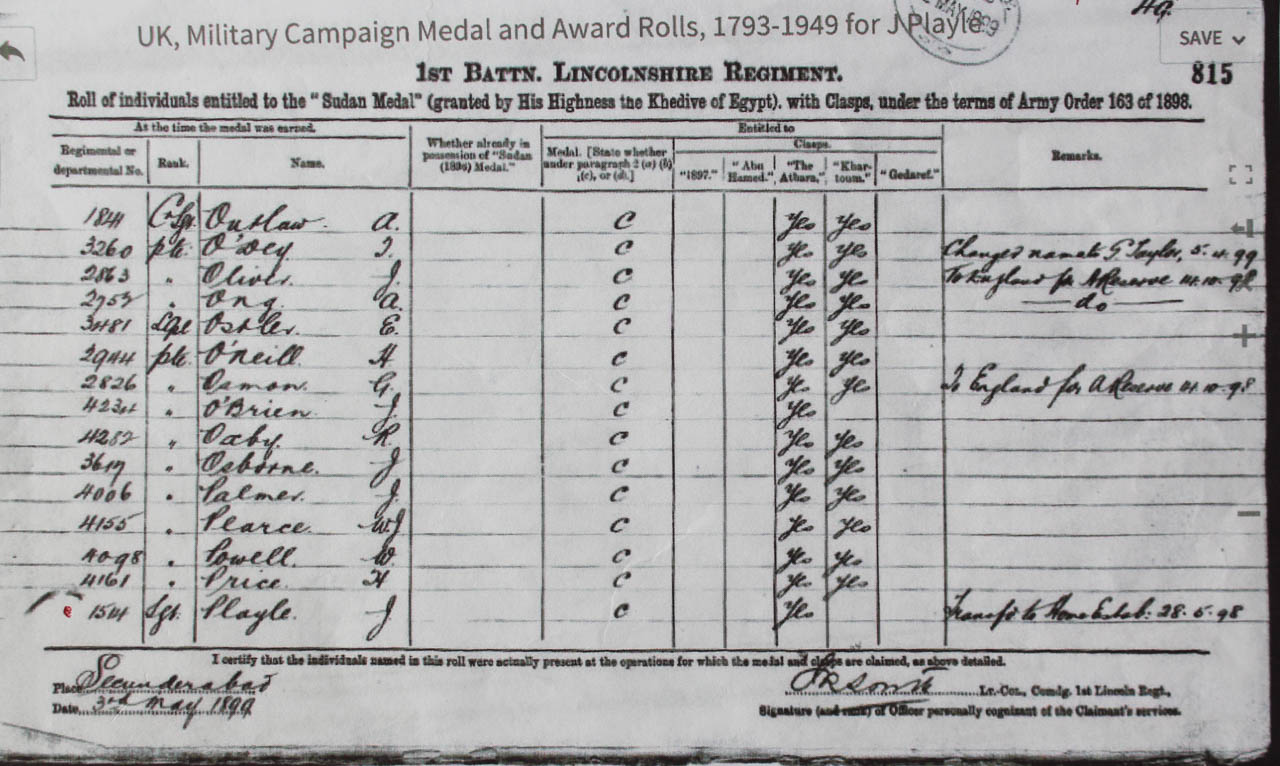 UK, Military Campaign Medal and Award Rolls, 1793-1949 for J Playle
SAVE
MAY 1899
1ST BATTN. LINCOLNSHIRE REGIMENT.
815
Roll of individuals entitled to the "Sudan Medal" (granted by His Highness the Khedive of Egypt). with Clasps, under the terms of Army Order 163 of 1898.
At the time the medal was earned.
Regimental or departmental No. Rank. Name. Whether already in possession of "Sudan (1896) Medal." Medal. [State whether under paragraph 2 (a) (b) (c), or (d).] Entitled to Clasps. "1897." "Abu Hamed." "The Atbara," "Khartoum." "Gedaref." Remarks.
1841 Cr Sgt Outlaw. A. C Yes Yes
3260 pte. O'Dey J. C Yes Yes Changed name to G Taylor, 5.4.99
2863 " Oliver. J. C Yes Yes To England for A Reserve 14.10.98
2752 " Ong. A. C Yes Yes do
3481 Lcpl Ostler. E. C Yes Yes
2944 pte. O'Neill. H C Yes Yes
2826 " Osmon. G. C Yes Yes To England for A Reserve 14.10.98
" O'Brien. J. C Yes
4282 " Oxby. R. C Yes Yes
" Osborne. J C Yes Yes
4006 " Palmer. J. C Yes Yes
4155 " Pearce. W J C Yes Yes
4098 " Powell. W. C Yes Yes
4161 " Price. H C Yes Yes
1514 Sgt. Playle. J C Yes Transfd to Home Estab: 28.5.98
I certify that the individuals named in this roll were actually present at the operations for which the medal and clasps are claimed, as above detailed.
Place Secunderabad
Lt.-Col., Comdg. 1st Lincoln Regt.,
Date 3rd May 1899
Signature (and rank) of Officer personally cognizant of the Claimant's services.